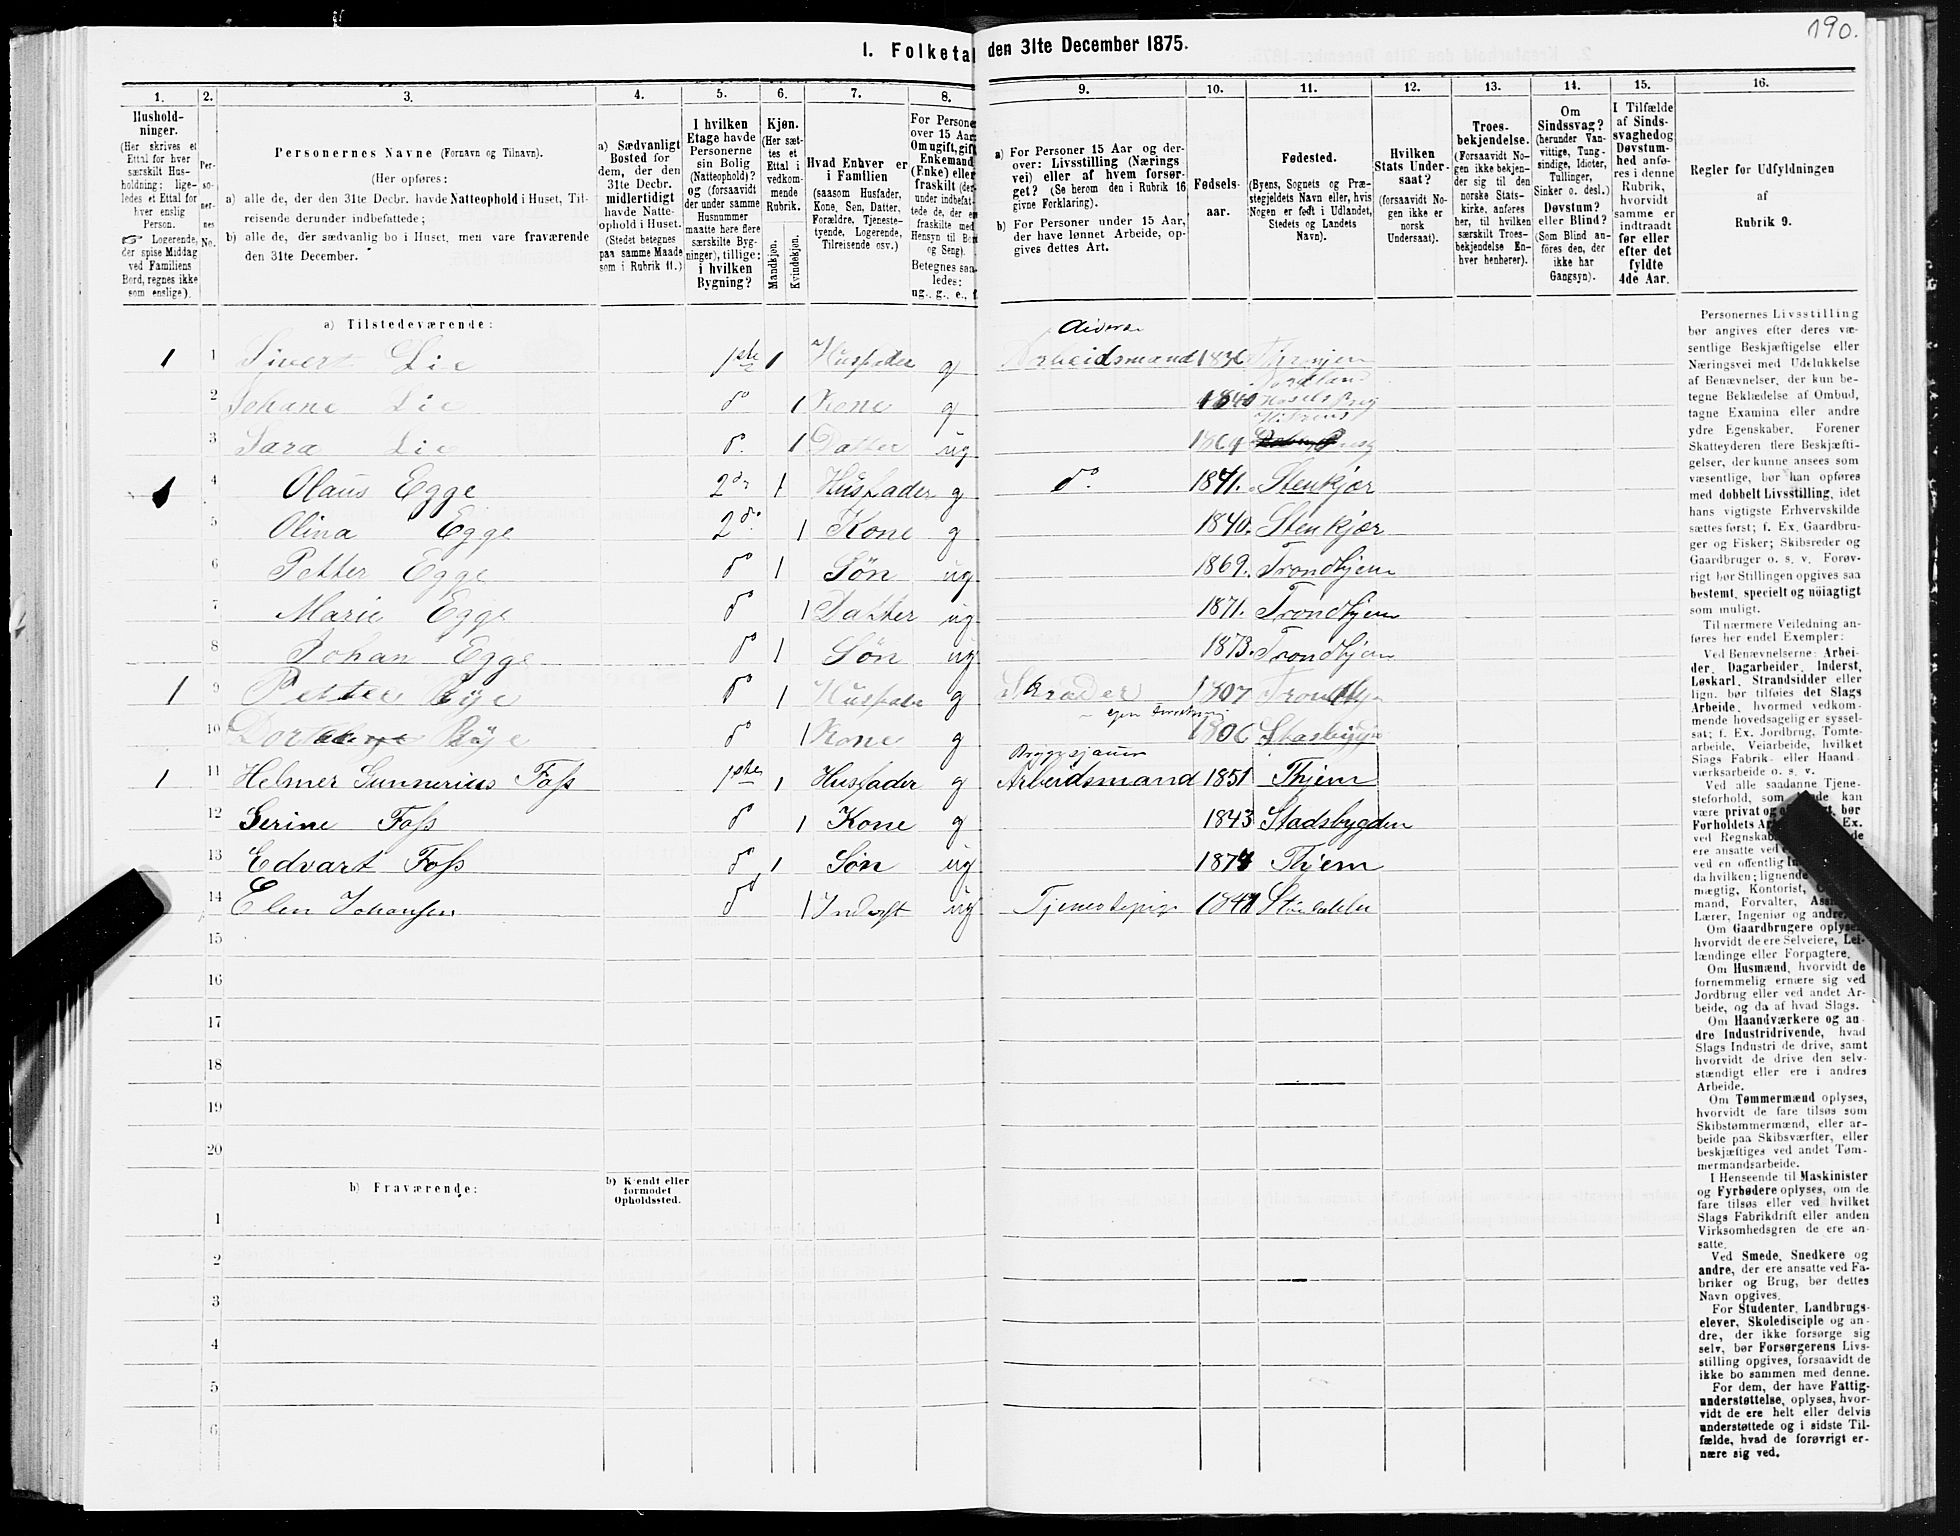 190.
I. Folketal den 31te December 1875.
1. 2. 3. 4. 5. 6. 7. 8. 9. 10. 11. 12. 13. 14. 15. 16.
Hushold-
ninger.
(Her skrives et
Ettal for hver
særskilt Hus-
holdning; lige-
ledes et Ettal for
hver enslig
Person.
☞ Logerende,
der spise Middag
ved Familiens
Bord, regnes ikke
som enslige).
Per-
so-
ner-
nes
No.
Personernes Navne (Fornavn og Tilnavn).
(Her opføres:
a) alle de, der den 31te Decbr. havde Natteophold i Huset, Til-
reisende derunder indbefattede;
b) alle de, der sædvanlig bo i Huset, men vare fraværende
den 31te December.
a) Sædvanligt
Bosted for
dem, der den
31te Decbr.
midlertidigt
havde Natte-
ophold i Huset.
(Stedet betegnes
paa samme Maade
som i Rubrik 11.)
I hvilken
Etage havde
Personerne
sin Bolig
(Natteophold)?
og (forsaavidt
der under samme
Husnummer
maatte høre flere
særskilte Byg-
ninger), tillige:
i hvilken
Bygning?
Kjøn.
(Her sæt-
tes et
Ettal i
vedkom-
mende
Rubrik.
Mandkjøn.
Kvindekjøn.
Hvad Enhver er
i Familien
(saasom Husfader,
Kone, Søn, Datter,
Forældre, Tjeneste-
tyende, Logerende,
Tilreisende osv.)
For Persone
over 15 Aar
Om ugift, gift
Enkemand
(Enke) eller
fraskilt (der
under indbefat-
tede de, der er
fraskilte med
Hensyn til Bo
og Seng).
Betegnes saa-
ledes:
ug., g., e., f.
a) For Personer 15 Aar og der-
over: Livsstilling (Nærings
vei) eller af hvem forsør-
get? (Se herom den i Rubrik 16
givne Forklaring).
b) For Personer under 15 Aar,
der have lønnet Arbeide, op-
gives dettes Art.
Fødsels-
aar.
Fødested.
(Byens, Sognets og Præ-
stegjeldets Navn eller, hvis
Nogen er født i Udlandet,
Stedets og Landets
Navn).
Hvilken
Stats Under-
saat?
(forsaavidt No-
gen ikke er
norsk
Undersaat).
Troes-
bekjendelse.
(Forsaavidt No-
gen ikke bekjen-
der sig til den
norske Stats-
kirke, anføres
her, til hvilken
særskilt Troes-
bekjendelse En-
hver henhører).
Om
Sindssvag?
(herunder Van-
vittige, Tung-
sindige, Idioter,
Tullinger,
Sinker o. desl.)
Døvstum?
eller Blind?
(Som Blind an-
føres den, der
ikke har
Gangsyn).
I Tilfælde
af Sinds-
svaghed og
Døvstum-
hed anfø-
res i denne
Rubrik,
hvorvidt
samme er
indtraadt
før eller
efter det
fyldte
4de Aar.
Regler for Udfyldningen
af
Rubrik 9.
a) Tilstedeværende:
1 1 Sivert Lie 1ste 1 Husfader g Arbeidsmand 1836
2 Johane Lie do 1 Kone g 1840
3 Sara Lie do 1 Datter ug
1 4 Olaus Egge 2de 1 Husfader g do. 1841. Stenkjær
5 Olina Egge 2do. 1 Kone g 1840. Stenkjær
6 Petter Egge do 1 Søn ug 1869. Trondhjem
7 Marie Egge do 1 Datter ug 1871. Trondhjem
8 Johan Egge do 1 Søn ug 1873. Trondhjem
1 9 Petter Rye do 1 Husfader g Skræder 1807
10 Rye do 1 Kone g 1806 Stadsbygd
Bryggesjauer
1 11 Helmer Gunnerius Foss 1ste 1 Husfader g Arbeidsmand 1851 Thjem
12 Gerine Foss do 1 Kone g 1843 Stadsbygden
13 Edvart Foss do 1 Søn ug 1874 Thjem
14 Elen Johansen do 1 ug Tjenestepige
15
16
17
18
19
20
b) Fraværende:
b) Kjendt eller
formodet
Opholdssted.
1
2
3
4
5
6
Personernes Livsstilling
bør angives efter deres væ-
sentlige Beskjæftigelse eller
Næringsvei med Udelukkelse
af Benævnelser, der kun be-
tegne Beklædelse af Ombud,
tagne Examina eller andre
ydre Egenskaber. Forener
Skatteyderen flere Beskjæfti-
gelser, der kunne ansees som
væsentlige, bør han opføres
med dobbelt Livsstilling, idet
hans vigtigste Erhvervskilde
sættes først; f. Ex. Gaardbru-
ger og Fisker; Skibsreder og
Gaardbruger o. s. v. Forøv-
rigt bør Stillingen opgives saa
bestemt, specielt og nöiagtigt
som muligt.
Til nærmere Veiledning an-
føres her endel Exempler:
Ved Benævnelserne: Arbei-
der, Dagarbeider, Inderst,
Løskarl, Strandsidder eller
lign. bør tilføies det Slags
Arbeide, hvormed vedkom-
mende hovedsagelig er syssel-
sat; f. Ex. Jordbrug, Tomte-
arbeide, Veiarbeide, hvilket
Slags Fabrik- eller Haand-
værksarbeide o. s. v.
Ved alle saadanne Tjene-
steforhold, som kan
være privat og bør
Forholdets Ex.
ved Regnska
ere ansatte ved
ved en offentlig
da hvilken; lignende
mægtig, Kontorist,
mand, Forvalter,
Lærer, Ingeniør og andre.
Om Gaardbrugere oplyses,
hvorvidt de ere Selveiere, Lei-
lændinge eller Forpagtere.
Om Husmænd, hvorvidt de
fornemmelig ernære sig ved
Jordbrug eller ved andet Ar-
beide, og da af hvad Slags.
Om Haandværkere og an-
dre Industridrivende, hvad
Slags Industri de drive, samt
hvorvidt de drive den selv-
stændigt eller ere i andres
Arbeide.
Om Tømmermænd oplyses,
hvorvidt de fare tilsøs som
Skibstømmermænd, eller ar-
beide paa Skibsværfter, eller
beskjæftiges ved andet Tøm-
mermandsarbeide.
I Henseende til Maskinister
og Fyrbødere oplyses, om de
fare tilsøs eller ved hvilket
Slags Fabrikdrift eller anden
Virksomhedsgren de ere an-
satte.
Ved Smede, Snedkere og
andre, der ere ansatte ved Fa-
briker og Brug, bør dettes
Navn opgives.
For Studenter, Landbrugs-
elever, Skoledisciple og an-
dre, der ikke forsørge sig
selv, bør Forsørgerens Livs-
stilling opgives, forsaavidt de
ikke bo sammen med denne.
For dem, der have Fattig-
understøttelse, oplyses, hvor-
vidt de ere helt eller delvis
understøttede og i sidste Til-
fælde, hvad de forøvrigt er-
nære sig ved.